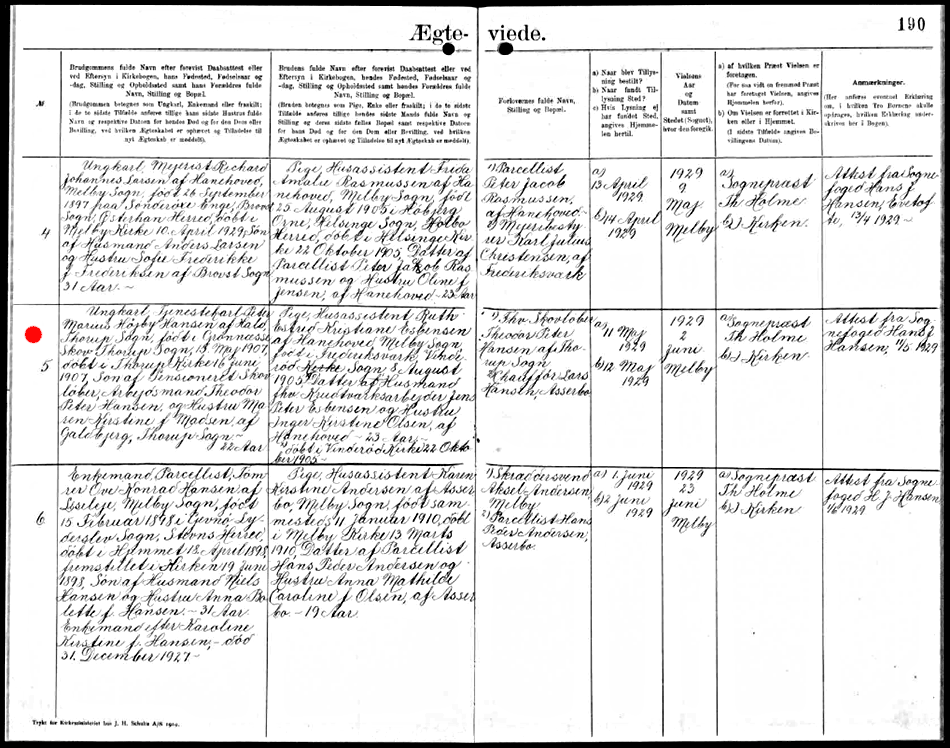 Ægte-viede.
190
№
Brudgommens fulde Navn efter forevist Daabsattest eller
ved Eftersyn i Kirkebogen, hans Fødested, Fødselsaar og
-dag, Stilling og Opholdssted samt hans Forældres fulde
Navn, Stilling og Bopæl.
(Brudgommen betegnes som Ungkarl, Enkemand eller fraskilt;
i de to sidste Tilfælde anføres tillige hans sidste Hustrus fulde
Navn og respektive Datum for hendes Død og for den Dom eller
Bevilling, ved hvilken Ægteskabet er ophævet og Tilladelse til
nyt Ægteskab er meddelt).
Brudens fulde Navn efter forevist Daabsattest eller ved
Eftersyn i Kirkebogen, hendes Fødested, Fødselsaar og
-dag, Stilling og Opholdssted samt hendes Forældres fulde
Navn, Stilling og Bopæl.
(Bruden betegnes som Pige, Enke eller fraskilt; i de to sidste
Tilfælde anføres tillige hendes sidste Mands fulde Navn og
Stilling og deres sidste fælles Bopæl samt respektive Datum
for hans Død og for den Dom eller Bevilling, ved hvilken
Ægteskabet er ophævet og Tilladelse til nyt Ægteskab er meddelt).
Forlovernes fulde Navn,
Stilling og Bopæl.
a) Naar blev Tillys-
ning bestilt?
b) Naar fandt Til-
lysning Sted?
c) Hvis Lysning ej
har fundet Sted,
angives Hjemme-
len hertil.
Vielsens
Aar
og
Datum
samt
Stedet (Sognet),
hvor den foregik.
a) af hvilken Præst Vielsen er
foretagen.
(For saa vidt en fremmed Præst
har foretaget Vielsen, angives
Hjemmelen herfor).
b) Om Vielsen er forrettet i Kir-
ken eller i Hjemmet.
(I sidste Tilfælde angives Be-
villingens Datum).
Anmærkninger.
(Her anføres eventuel Erklæring
om, i hvilken Tro Børnene skulle
opdrages, hvilken Erklæring under-
skrives her i Bogen).
4
Ungkarl, Mejerist Richard
Johannes Larsen af Hanehoved,
Melby Sogn, født 26 September
1897 paa Sønderøre Enge, Brovst
Sogn, Østerhan Herred, døbt i
Melby Kirke 10. April 1929, Søn
af Husmand Anders Larsen
og Hustru Sofie Frederikke
f. Frederiksen af Brovst Sogn
31 Aar. ~
Pige, Husassistent Frida
Amalie Rasmussen af Ha-
nehoved, Melby Sogn, født
25 August 1905 i Høbjerg
Orne, Helsinge Sogn, Holbo
Herred, døbt i Helsinge Kir-
ke 22 Oktober 1905, Datter af
Parcellist Peter Jakob Ras-
mussen og Hustru Oline f.
Jensen, af Hanehoved - 23 Aar
1) Parcellist
Peter Jacob
Rasmussen,
af Hanehoved -
2) Mejeribesty-
rer Karl Julius
Christensen, af
Frederiksværk
a)
13 April
1929
b) 14 April
1929
1929
9
Maj
Melby
a)
Sognepræst
Th Holme
b) Kirken.
Attest fra Sogne-
foged Hans J.
Hansen, Evetof-
te, 13/4 1929 ~
5
Ungkarl, Tjenestekarl Peter
Marius Højby Hansen af Hald,
Thorup Sogn, født i Grønnæsse
Skov Thorup Sogn, 13 Maj 1907,
døbt i Thorup Kirke 16 Juni
1907, Søn af Pensioneret Skov-
løber, Arbejdsmand Theodor
Peter Hansen, og Hustru Ma-
ren Kirstine f. Madsen, af
Galdbjerg, Thorup Sogn. ~
22 Aar
Pige, Husassistent Ruth
Estrid Kristiane Esbensen
af Hanehoved Melby Sogn,
født i Frederiksværk, Vinde-
rød Kirke Sogn, 3 August
1905, Datter af Husmand
fhv. Krudtværksarbejder Jens
Peter Esbensen og Hustru
Inger Kirstine Olsen, af
Hanehoved ~ 23 Aar. ~
døbt i Vinderød Kirke 22 Okto-
ber 1905 ~
1) Fhv. Skovløber
Theodor Peter
Hansen af Tho-
rup Sogn
2) Chauffør Lars
Hansen, Asserbo
a) 11 Maj
1929
b) 12 Maj
1929
1929
2
Juni
Melby
a) Sognepræst
Th Holme
b) Kirken.
Attest fra Sog-
nefoged Hans J.
Hansen, 11/5 1929
6
Enkemand, Parcellist, Tøm-
rer Ove Konrad Hansen af
Liseleje, Melby Sogn, født
15 Februar 1898 i Gevnø Ly-
derslev Sogn, Stevns Herred,
døbt i Hjemmet 18. April 1898
fremstillet i Kirken 19 Juni
1898, Søn af Husmand Niels
Hansen og Hustru Anna Bo-
lette f. Hansen. - 31 Aar.
Enkemand efter Karoline
Kirstine f. Hansen, - død
31. December 1927 -
Pige, Husassistent Karen
Kirstine Andersen af Asser-
bo, Melby Sogn, født sam-
mesteds 11 Januar 1910, døbt
i Melby Kirke 13 Marts
1910, Datter af Parcellist
Hans Peder Andersen og
Hustru Anna Mathilde
Caroline f. Olsen, af Asser-
bo. - 19 Aar.
1) Skræddersvend
Aksel Andersen,
Melby
2) Parcellist Hans
Peder Andersen,
Asserbo.
a) 1. Juni
1929
b) 2 Juni
1929
1929
23
Juni
Melby
a) Sognepræst
Th Holme
b) Kirken
Attest fra Sogne-
foged H. J. Hansen
1/6 1929
Trykt for Kirkeministeriet hos J. H. Schultz A/S 1924.